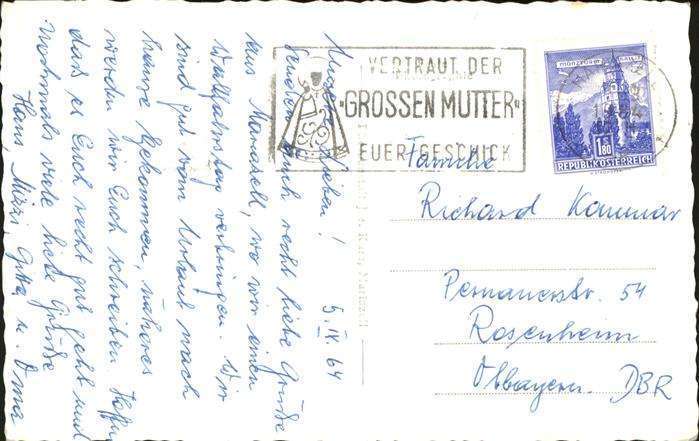 Unsere Lieben!
5. IX 64
Senden Euch recht liebe Grüße
aus Mariazell, wo wir einen
Wallfahrtstag verbringen. Wir
sind gut vom Urlaub nach
hause gekommen, näheres
werden wir Euch schreiben. Hoffen
daß es Euch recht gut geht und
nochmals viele liebe Grüße
Hans, Mizzi, Gitta u. Oma
VERTRAUT DER
"GROSSEN MUTTER"
EUER GESCHICK
MÜNZTURM HALL i. T.
1.80
REPUBLIK ÖSTERREICH
Familie
Richard Kammer
Pernauerstr. 54
Rosenheim
Obbayern. DBR